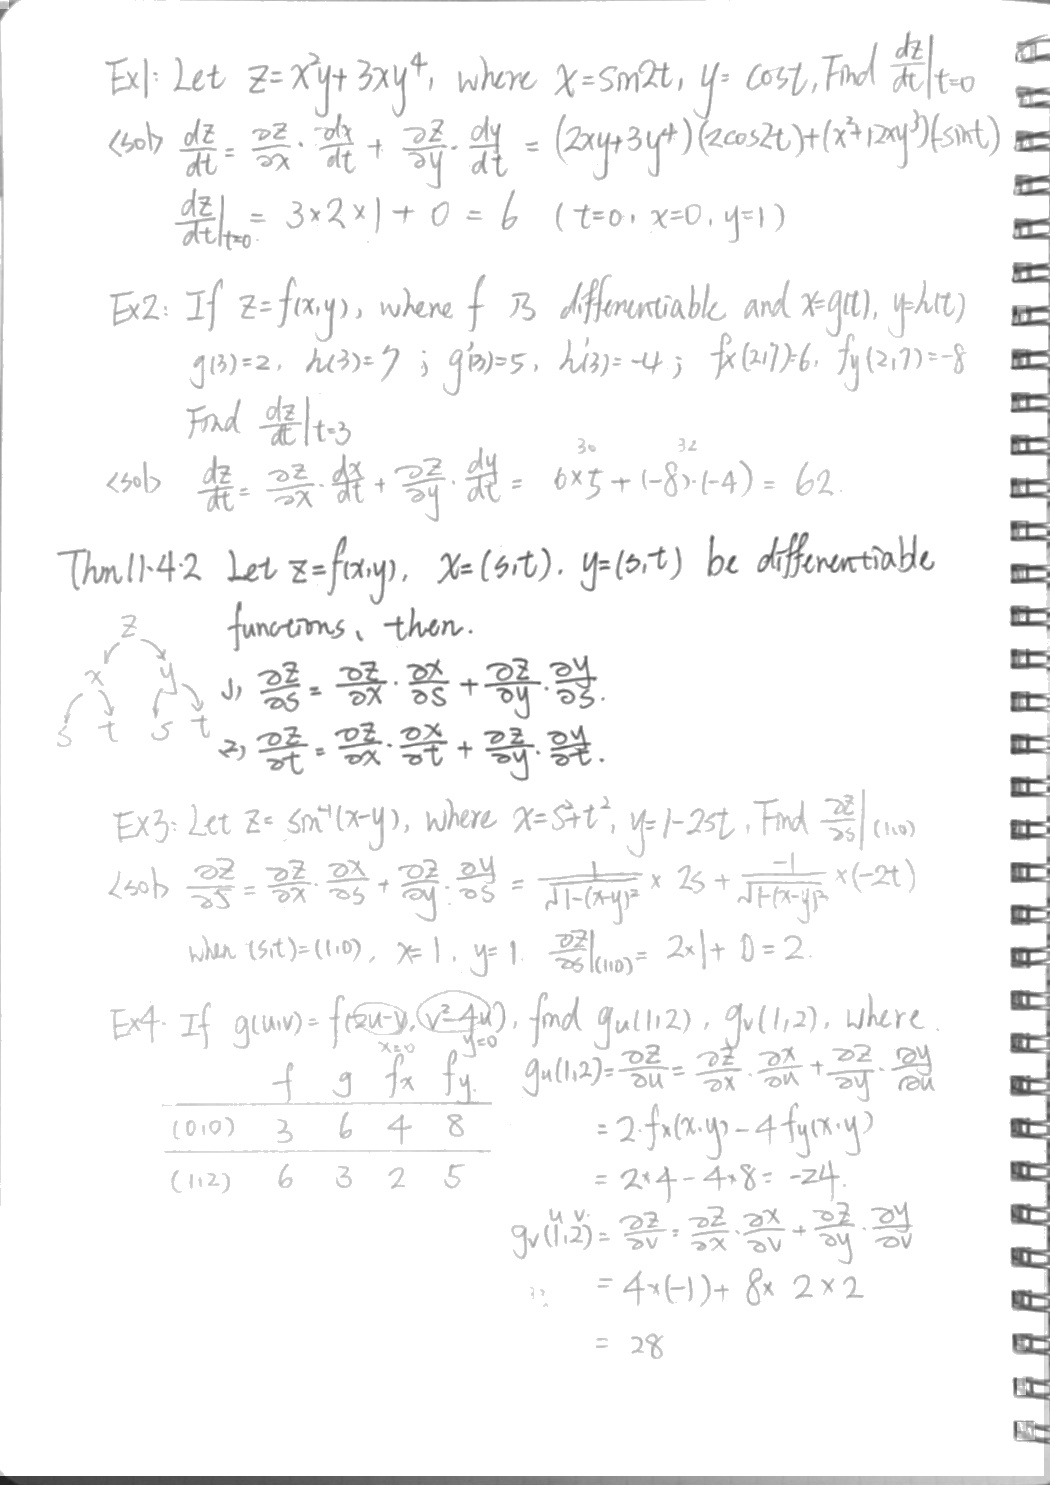 Ex1: Let z = x²y + 3xy⁴, where x = sin2t, y = cost, Find dz/dt|t=0
<sol> dz/dt = ∂z/∂x · dx/dt + ∂z/∂y · dy/dt = (2xy+3y⁴)(2cos2t)+(x²+12xy³)(-sint)
dz/dt|t=0 = 3×2×1 + 0 = 6 (t=0, x=0, y=1)
Ex2: If z = f(x,y), where f is differentiable and x=g(t), y=h(t)
g(3)=2, h(3)=7 ; g'(3)=5, h'(3)=-4 ; fx(2,7)=6, fy(2,7)=-8
Find dz/dt|t=3
30 32
<sol> dz/dt = ∂z/∂x · dx/dt + ∂z/∂y · dy/dt = 6×5 + (-8)·(-4) = 62.
Thm 11.4.2 Let z = f(x,y), x=(s,t), y=(s,t) be differentiable
functions, then.
z
x y
s t s t
1) ∂z/∂s = ∂z/∂x · ∂x/∂s + ∂z/∂y · ∂y/∂s.
2) ∂z/∂t = ∂z/∂x · ∂x/∂t + ∂z/∂y · ∂y/∂t.
Ex3: Let z = sin⁻¹(x-y), where x=s²+t², y=1-2st, Find ∂z/∂s|(1,0)
<sol> ∂z/∂s = ∂z/∂x · ∂x/∂s + ∂z/∂y · ∂y/∂s = 1/√1-(x-y)² × 2s + -1/√1-(x-y)² ×(-2t)
when (s,t)=(1,0), x=1, y=1. ∂z/∂s|(1,0) = 2×1+0=2.
Ex4. If g(u,v) = f(2u-v, v²-4u), find gu(1,2), gv(1,2), where.
x=0 y=0
f g fx fy
(0,0) 3 6 4 8
(1,2) 6 3 2 5
gu(1,2) = ∂z/∂u = ∂z/∂x · ∂x/∂u + ∂z/∂y · ∂y/∂u
= 2·fx(x,y) - 4fy(x,y)
= 2×4 - 4×8 = -24.
u v.
gv(1,2) = ∂z/∂v = ∂z/∂x · ∂x/∂v + ∂z/∂y · ∂y/∂v
= 4×(-1) + 8× 2×2
= 28